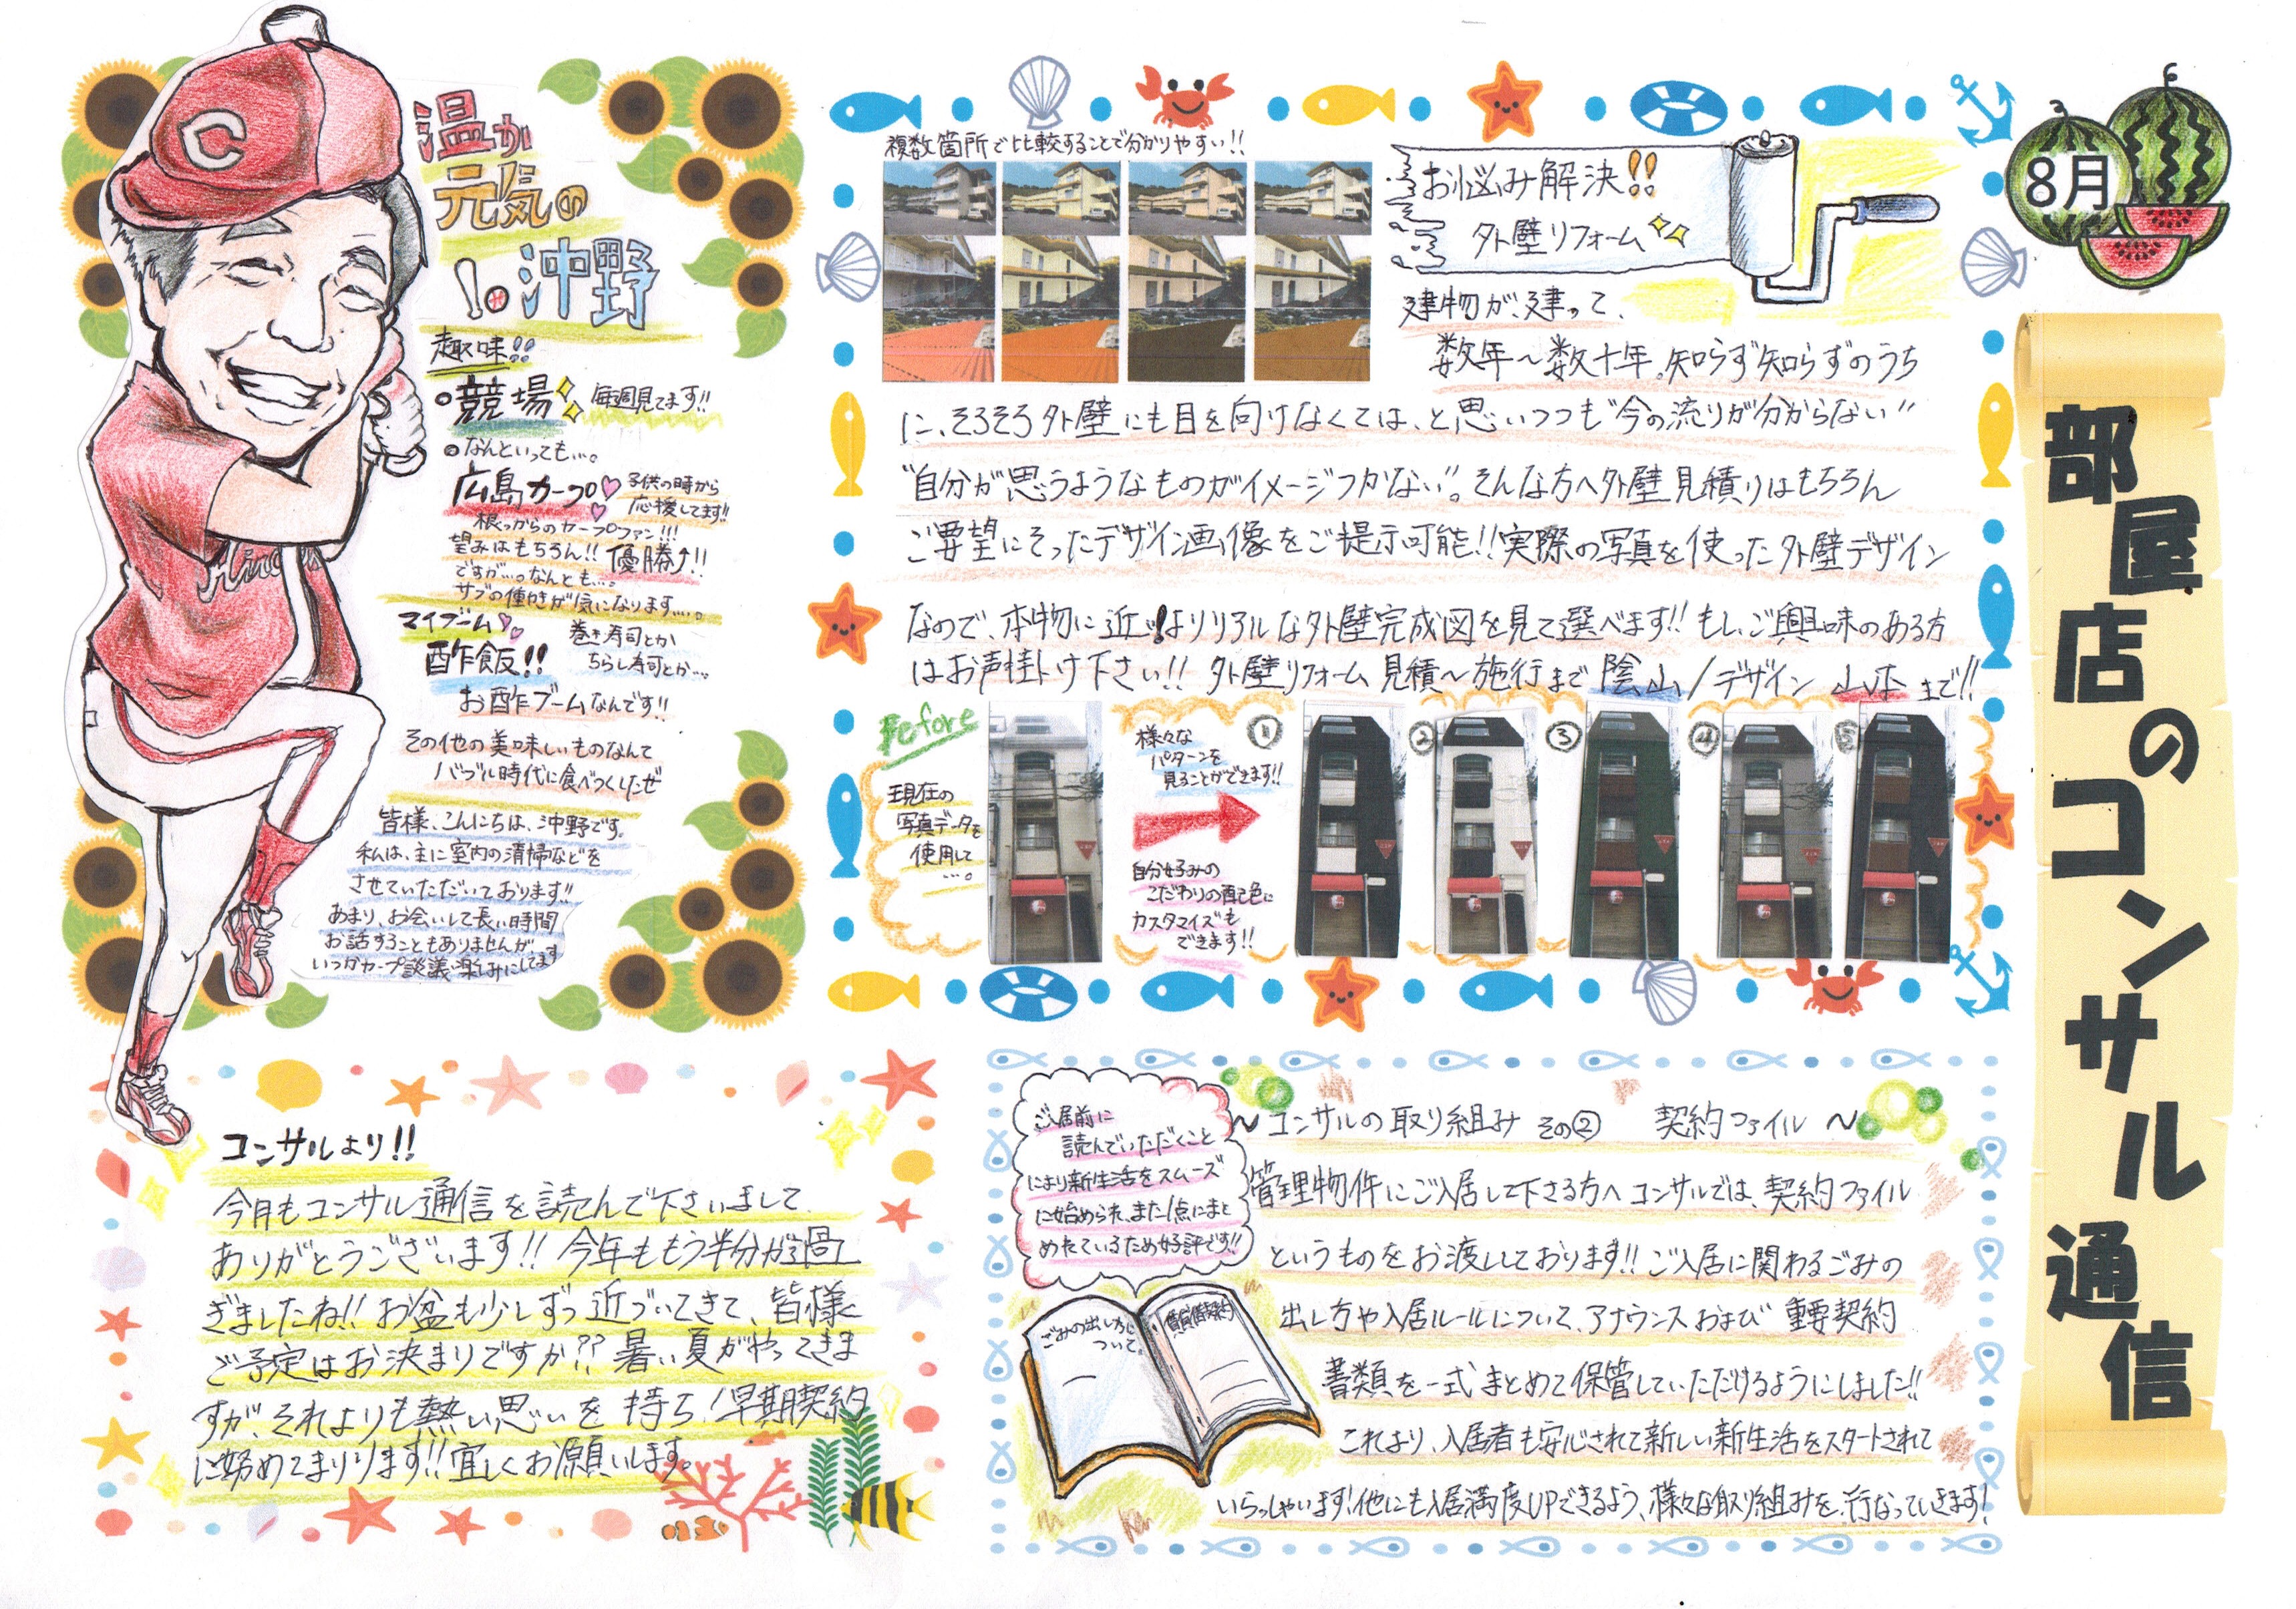 8月
部屋店のコンサル通信
複数箇所で比較することで分かりやすい!!
お悩み解決!!
外壁リフォーム
建物が、建って、
数年〜数十年。知らず知らずのうち
に、そろそろ外壁にも目を向けなくては、と思いつつも"今の流行が分からない"
"自分が思うようなものがイメージつかない"。そんな方へ外壁見積りはもちろん
ご要望にそったデザイン画像をご提示可能!!実際の写真を使った外壁デザイン
なので、本物に近い!よりリアルな外壁完成図を見て選べます!!もし、ご興味のある方
はお声掛け下さい!!外壁リフォーム見積〜施行まで陰山/デザイン山本まで!!
Before
現在の
写真データを
使用して
...。
様々な
パターンを
見ることができます!!
自分好みの
こだわりの配色に
カスタマイズも
できます!!
①
②
③
④
⑤
C
温か
元気の
沖野
趣味!!
競場 毎週見てます!!
なんといっても...。
広島カープ 子供の時から
応援してます!!
根っからのカープファン!!!
望みはもちろん!!優勝!!
ですが...。なんとも...。
サブの働きが気になります...。
マイブーム
酢飯!!
巻き寿司とか
ちらし寿司とか...
お酢ブームなんです!!
その他の美味しいものなんて
バブル時代に食べつくしたぜ
皆様、こんにちは、沖野です。
私は、主に室内の清掃などを
させていただいております!!
あまり、お会いして長い時間
お話することもありませんが、
いつかカープ談議楽しみにしてます
~コンサルの取り組み その② 契約ファイル~
ご入居前に
読んでいただくこと
により新生活をスムーズ
に始められ、また1点にまと
めれているため好評です!!
ごみの出し方に
ついて。
賃貸借契約
管理物件にご入居して下さる方へコンサルでは、契約ファイル
というものをお渡ししております!!ご入居に関わるごみの
出し方や入居ルールについて、アナウンスおよび重要契約
書類を一式まとめて保管していただけるようにしました!!
これより、入居者も安心されて新しい新生活をスタートされて
いらっしゃいます!他にも入居満度UPできるよう、様々な取り組みを行なっていきます!
コンサルより!!
今月もコンサル通信を読んで下さいまして、
ありがとうございます!!今年ももう半分が過
ぎましたね!!お盆も少しずつ近づいてきて、皆様
ご予定はお決まりですか??暑い夏がやってきま
すが、それよりも熱い思いを持ち!早期契約
に努めてまりります!!宜しくお願いします。